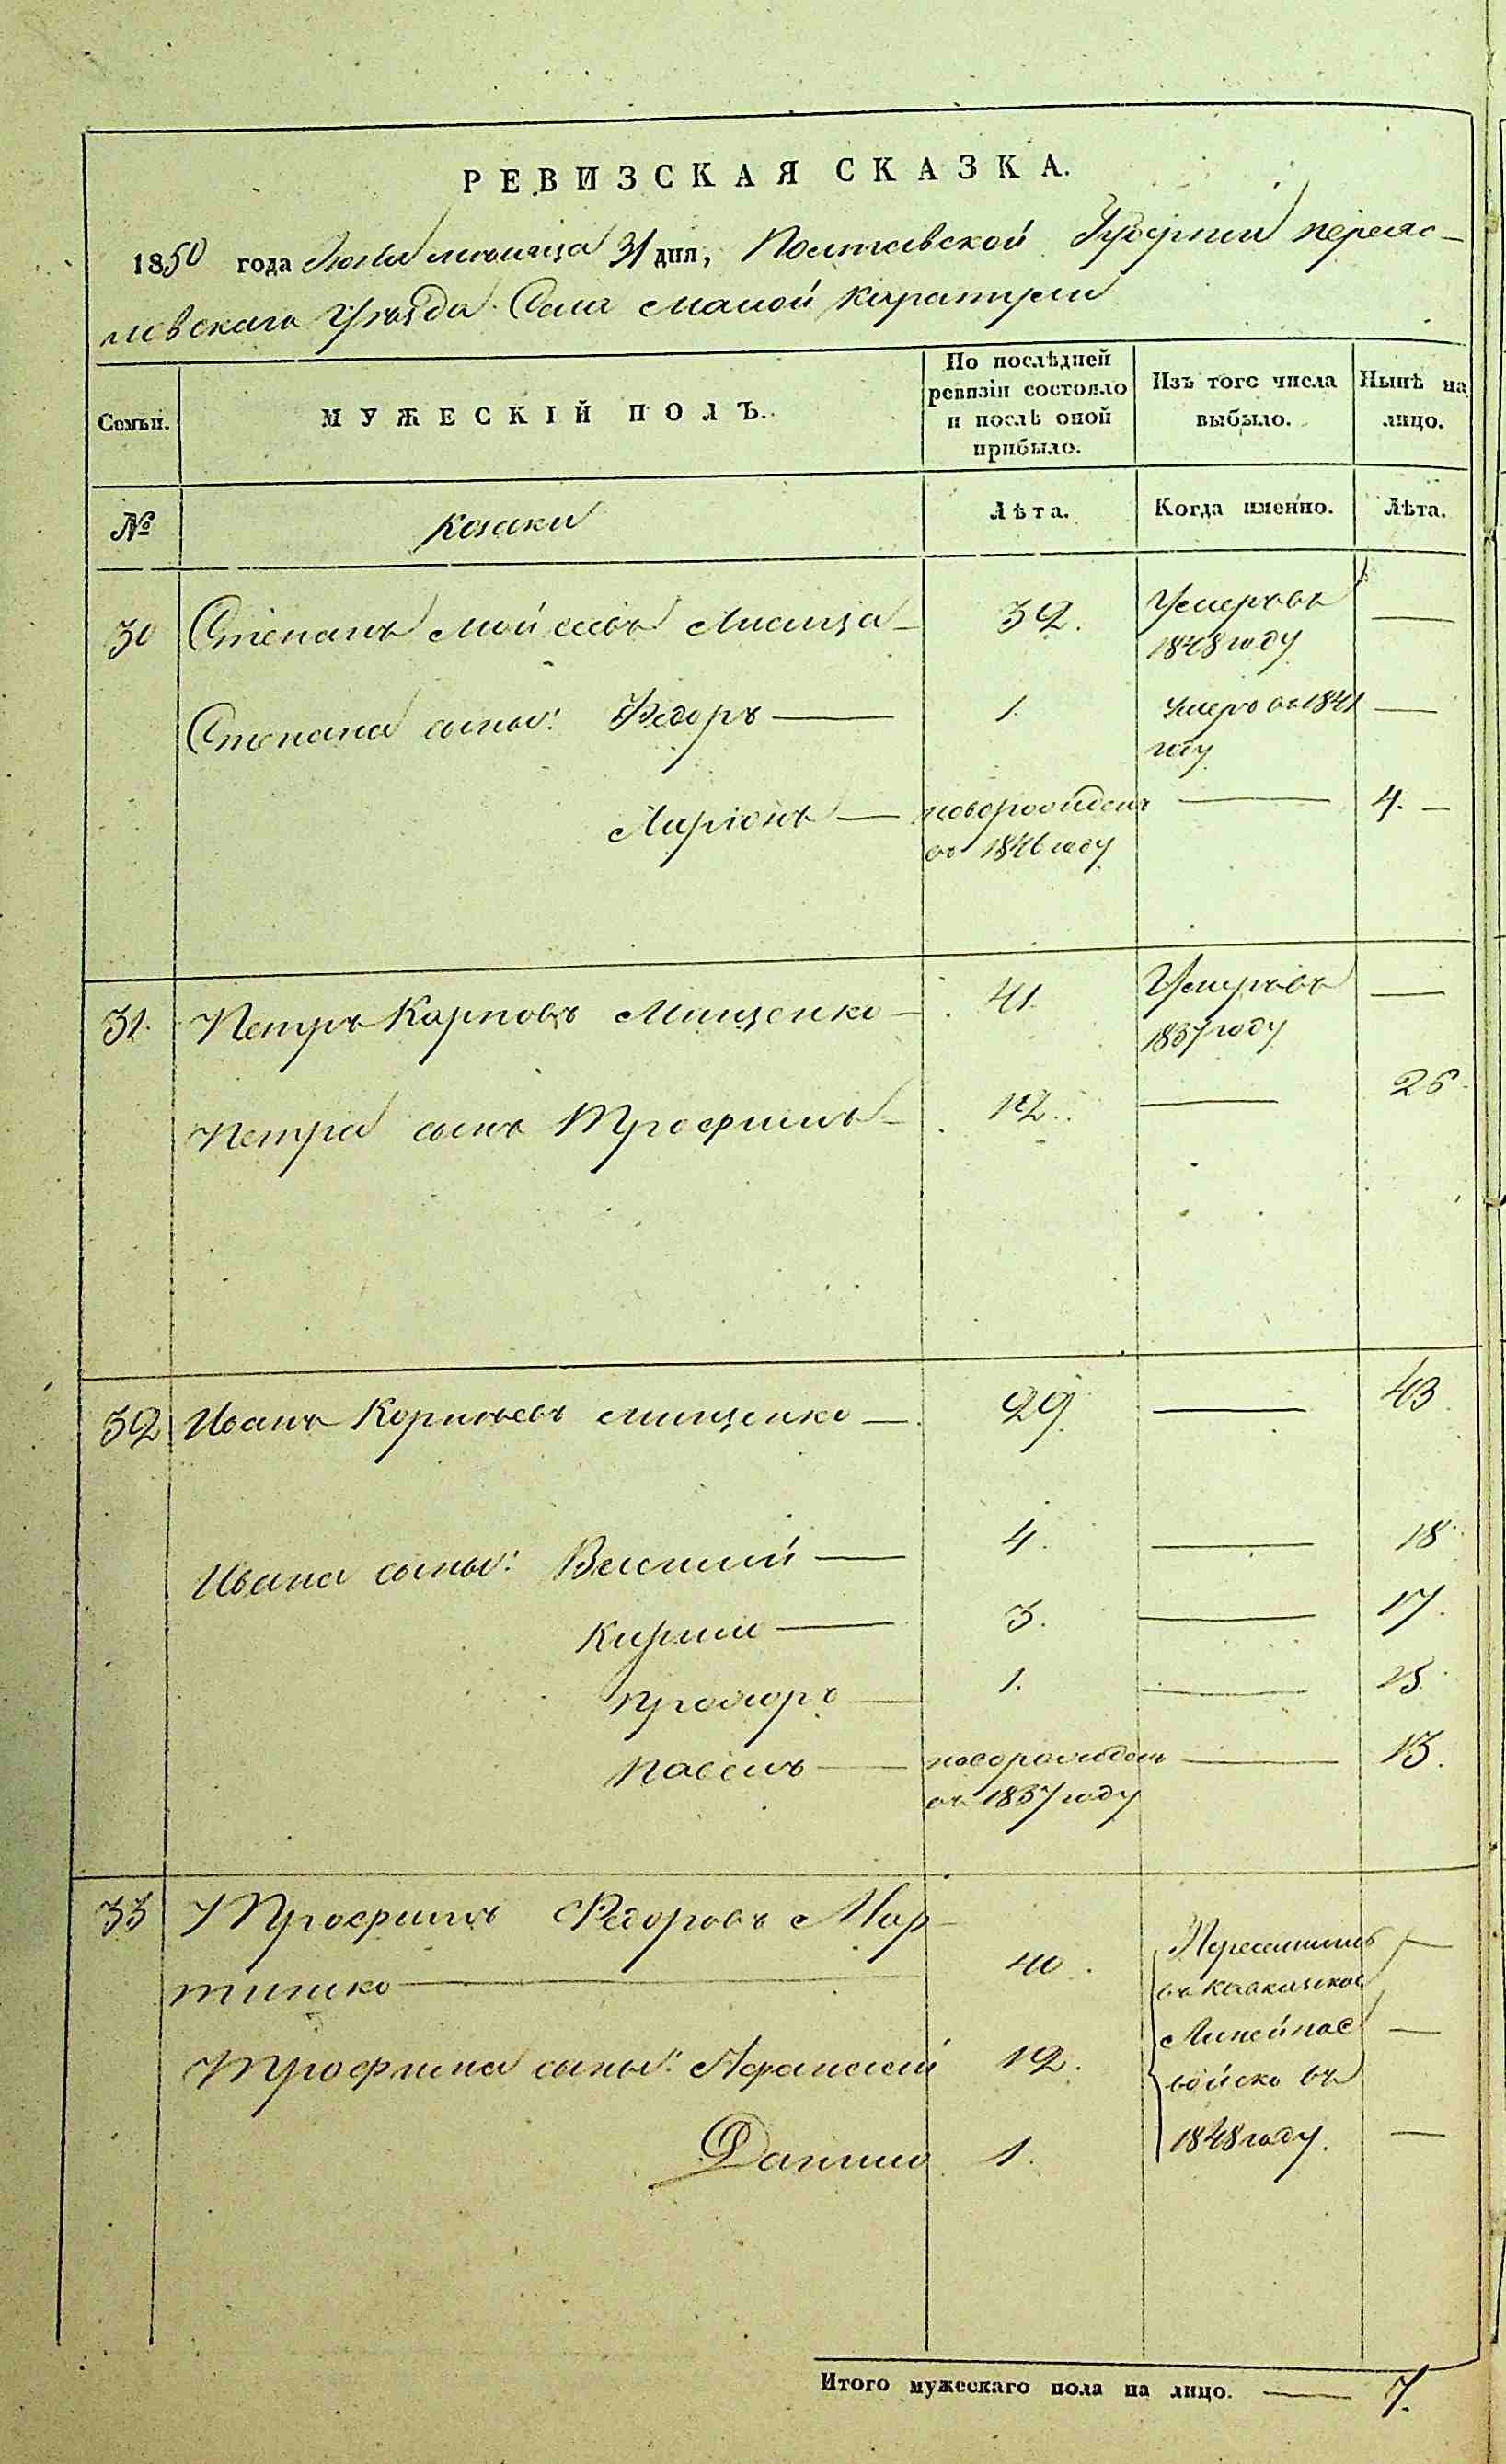 РЕВИЗСКАЯ СКАЗКА.
1850 года Июля месяца 31 дня, Полтавской Губернии Переяс-
лавскаго Уѣзда Села малой Каратули
Семьи.
МУЖЕСКІЙ ПОЛЪ.
По послѣдней ревизіи состояло и послѣ оной прибыло.
Изъ того числа выбыло.
Нынѣ на лицо.
№
Козаки
Лѣта.
Когда именно.
Лѣта.
30 Степанъ Мойсеевъ Лисица — 32. Умеръ въ 1848 году —
Степана сыновья: Ѳедоръ — 1. Умеръ въ 1841 году —
Ларіонъ — новорожденъ въ 1846 году — 4. —
31. Петръ Карповъ Мищенко — 41. Умеръ въ 1837 году —
Петра сынъ Трофимъ — 12. — 26.
32 Иванъ Корнѣевъ Мищенко — 29. — 43
Ивана сыновья: Василій — 4. — 18
Кирило — 3. — 17.
Прохоръ — 1. — 15.
Павелъ — новорожденъ въ 1837 году — 13.
33 Трофимъ Ѳедоровъ Мар-
тинко — 40. Переселились —
въ Кавказкое
Линейное —
войско въ
1848 году. —
Трофима сыновья: Афанасий 12.
Данило 1.
Итого мужескаго пола на лицо. — 7.